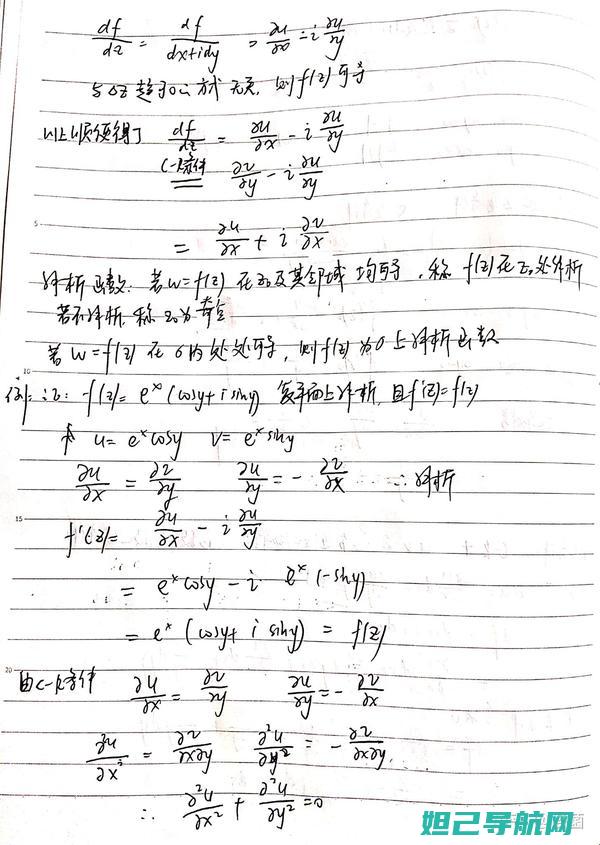 df/dz = df/dx+idy = ∂u/∂x - i ∂u/∂y
与Δz趋于0方式无关, 则f(z)可导
以上顺便得了 df/dz = ∂u/∂x - i ∂u/∂y
C-R条件 ∂v/∂y - i ∂u/∂y
5
= ∂u/∂x + i ∂v/∂x
解析函数: 若w=f(z) 在z₀及其邻域 均可导, 称 f(z)在z₀处解析
若不解析, 称z₀为奇点
若 w=f(z) 在 σ内处处可导, 则f(z)为σ上解析函数
10
例: 证: f(z)= eˣ(cosy+isiny) 复平面上解析, 且f'(z)=f(z)
u= eˣcosy v= eˣsiny
∂u/∂x = ∂v/∂y ∂u/∂y = - ∂v/∂x ∴ 解析
15
f'(z)= ∂u/∂x - i ∂u/∂y
= eˣcosy - i eˣ(-siny)
= eˣ(cosy+ i siny) = f(z)
20
由C-R条件 ∂u/∂x = ∂v/∂y ∂u/∂y = - ∂v/∂x
∂²u/∂x² = ∂v/∂x∂y ∂²u/∂y² = - ∂v/∂x∂y
∴ ∂²u/∂x² + ∂²u/∂y² =0
妲己导航网